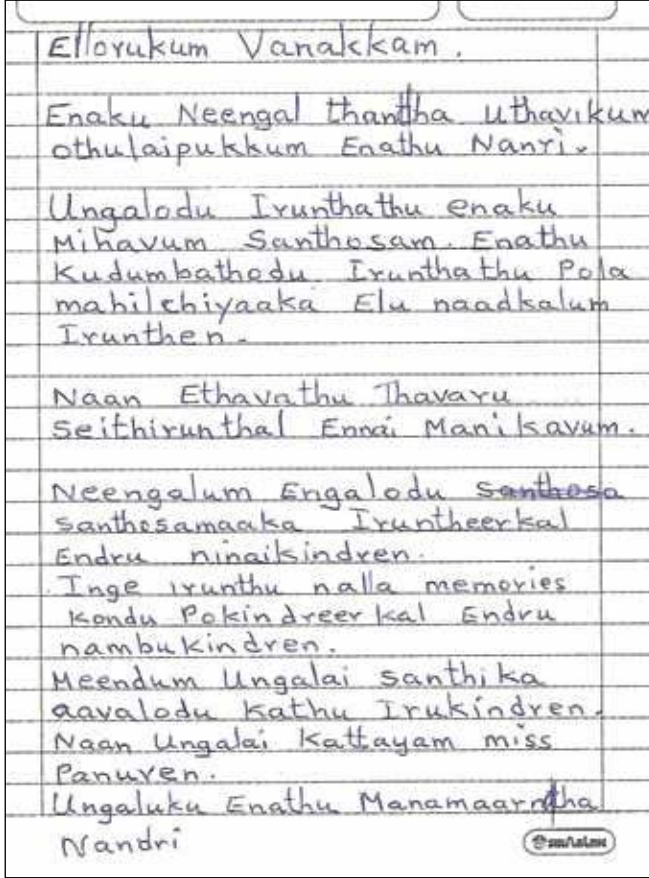 Ellorukum Vanakkam.
Enaku Neengal thantha Uthavikum
othulaipukkum Enathu Nanri.
Ungalodu Irunthathu enaku
Mihavum Santhosam. Enathu
Kudumbathodu Irunthathu Pola
mahilchiyaaka Elu naadkalum
Irunthen.
Naan Ethavathu Thavaru
Seithirunthal Ennai Manikavum.
Neengalum Engalodu santhosa
santhosamaaka Iruntheerkal
Endru ninaikindren.
Inge irunthu nalla memories
Kondu Pokindreerkal Endru
nambukindren.
Meendum Ungalai santhika
aavalodu Kathu Irukindren.
Naan Ungalai Kattayam miss
Panuven.
Ungaluku Enathu Manamaarntha
Nandri